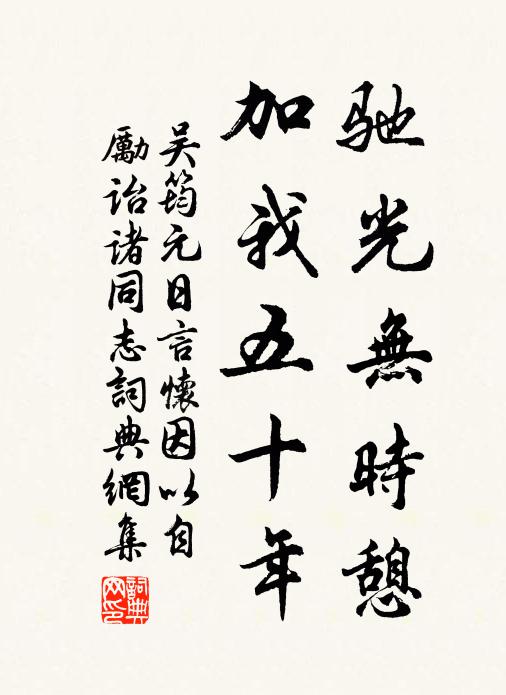 馳光無時憩
加我五十年
吴筠元日言懷因以自
勵詒諸同志詞典網集
詞典
网印